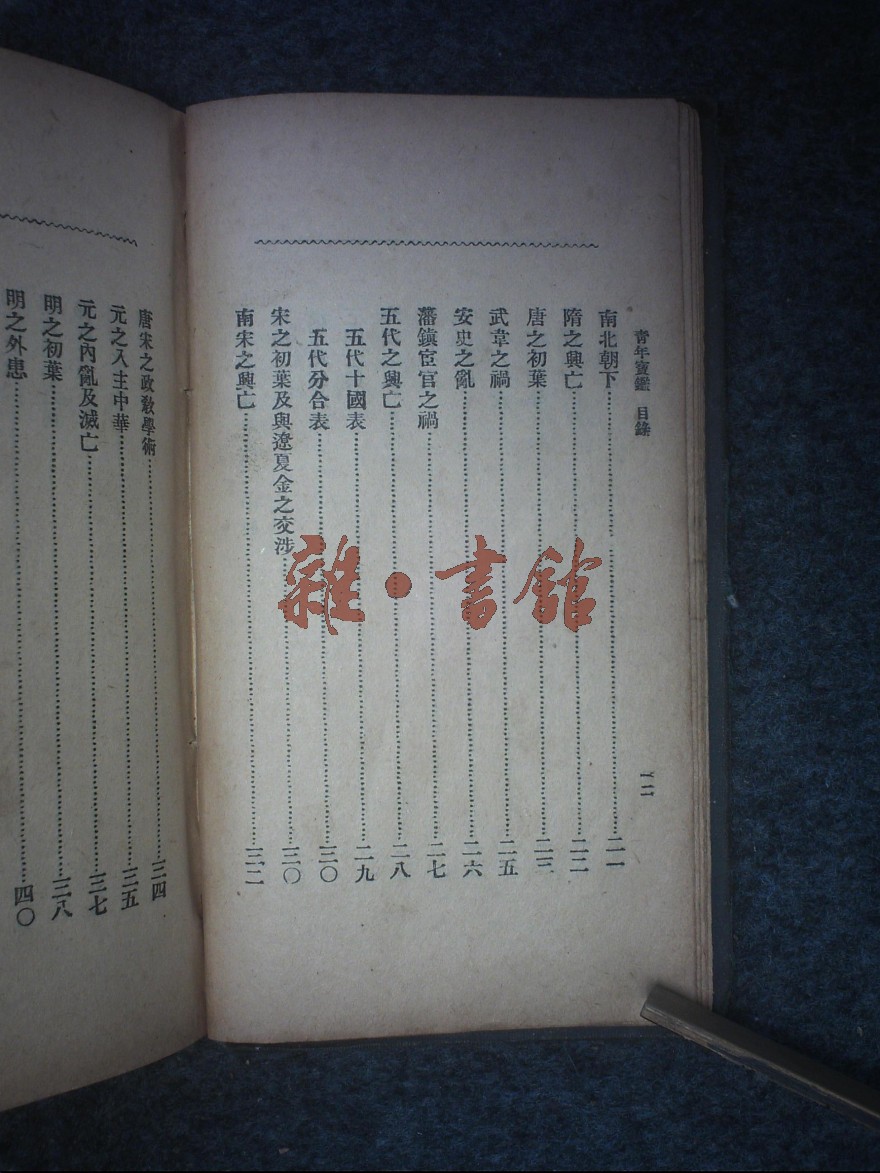 青年寶鑑 目錄
二
南北朝下……二一
隋之興亡……二二
唐之初葉……二三
武韋之禍……二五
安史之亂……二六
藩鎭宦官之禍……二七
五代之興亡……二八
五代十國表……二九
五代分合表……三〇
宋之初葉及與遼夏金之交涉……三〇
南宋之興亡……三二
唐宋之政敎學術……三四
元之入主中華……三五
元之內亂及滅亡……三七
明之初葉……三八
明之外患……四〇
雜·書館